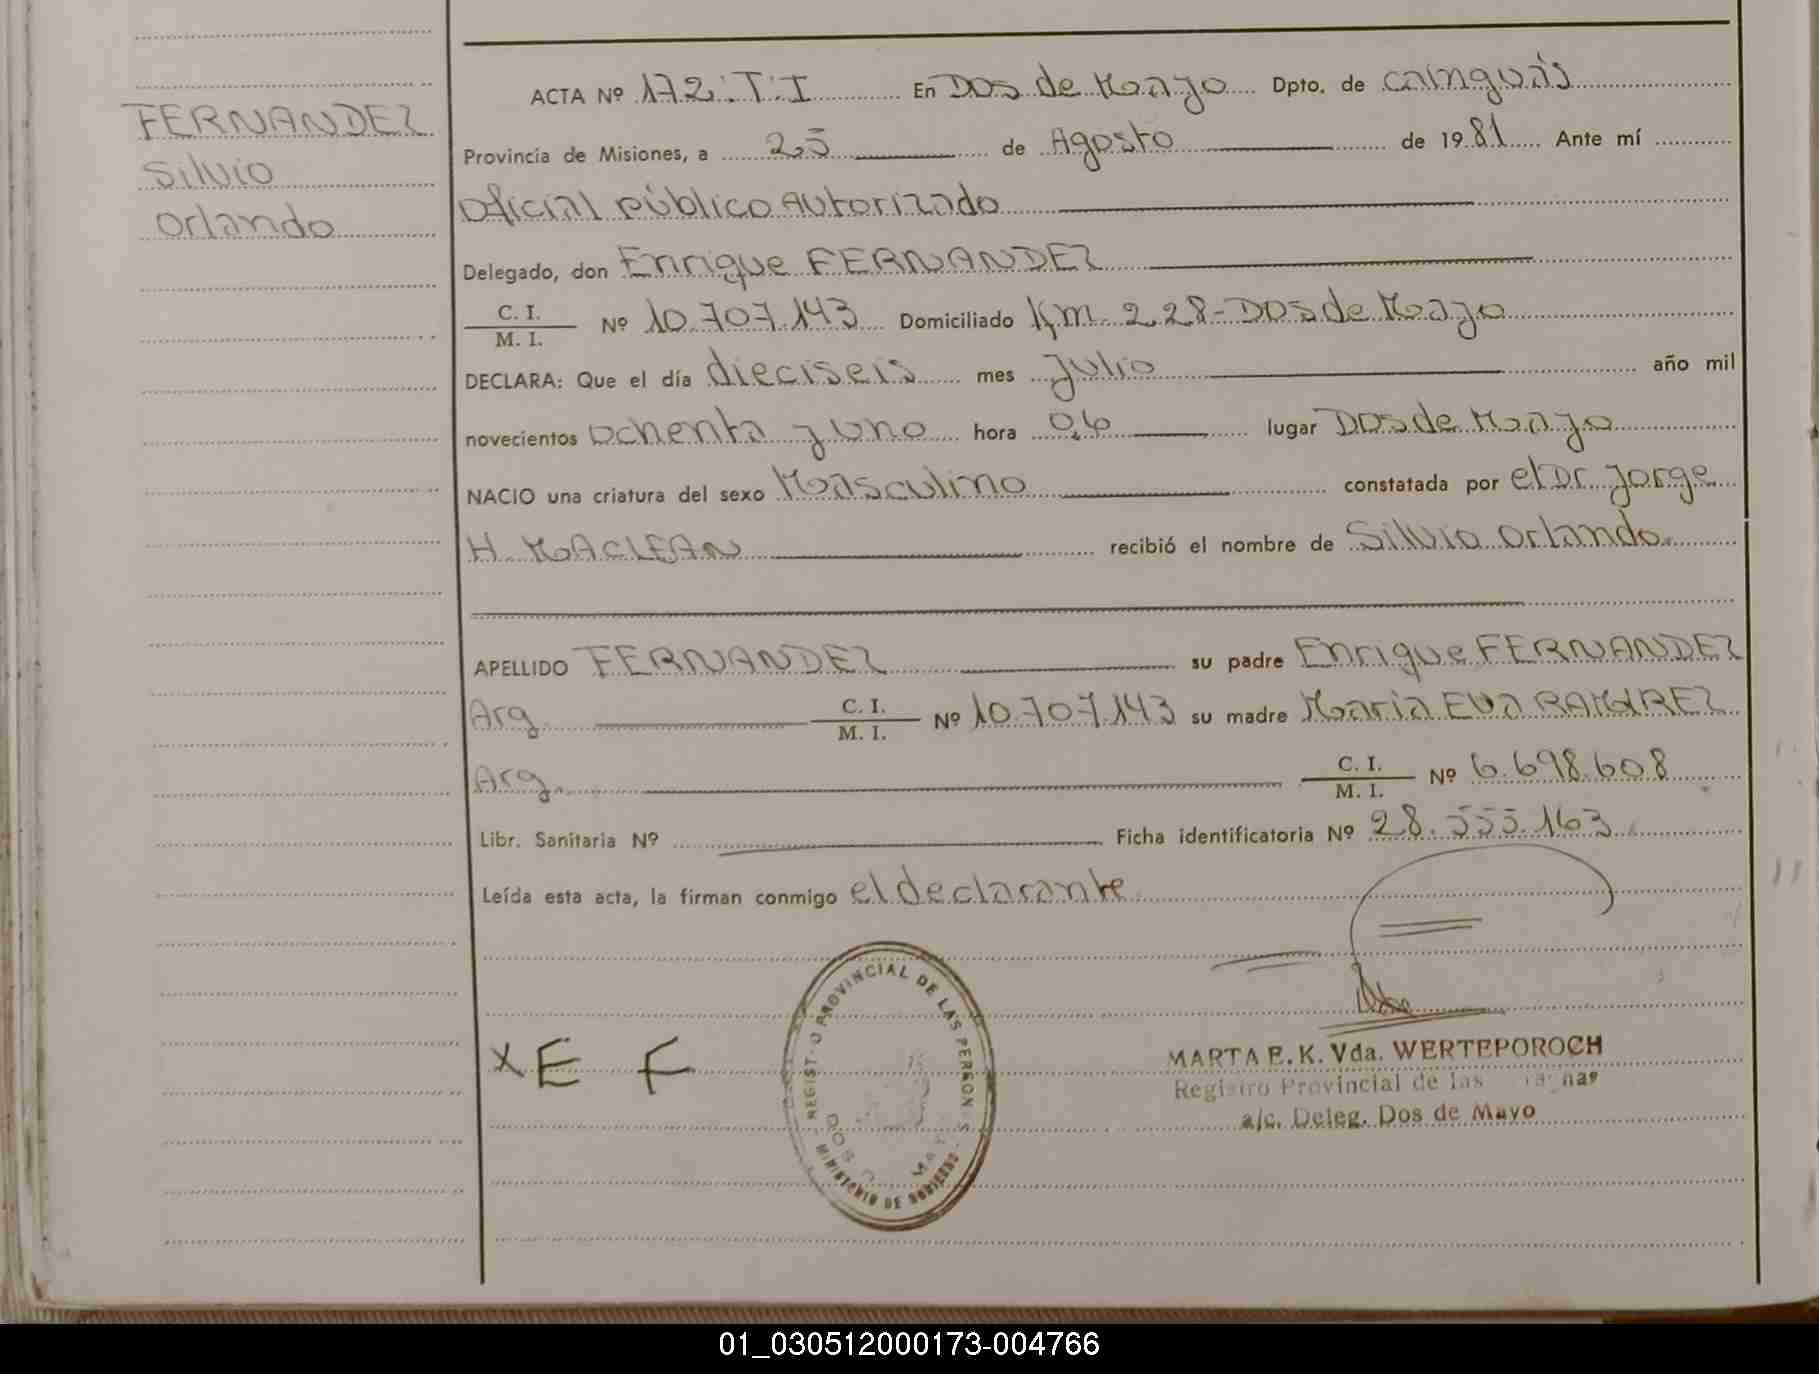 FERNANDEZ
Silvio
Orlando
ACTA Nº 172.T.I En Dos de Mayo Dpto. de cainguás
Provincia de Misiones, a 25 de Agosto de 1981 Ante mí
Oficial público Autorizado
Delegado, don Enrique FERNANDEZ
C. I. / M. I. Nº 10.707.143 Domiciliado Km. 228-Dos de Mayo
DECLARA: Que el día dieciseis mes julio año mil
novecientos ochenta y uno hora 06 lugar Dos de Mayo
NACIO una criatura del sexo Masculino constatada por el Dr. Jorge
H. MACLEAN recibió el nombre de Silvio Orlando.
APELLIDO FERNANDEZ su padre Enrique FERNANDEZ
Arg. C. I. / M. I. Nº 10.707.143 su madre Maria Eva RAMIREZ
Arg. C. I. / M. I. Nº 6.698.608
Libr. Sanitaria Nº Ficha identificatoria Nº 28.555.163
Leída esta acta, la firman conmigo el declarante
x E F
REGISTRO PROVINCIAL DE LAS PERSONAS
DOS D MAY
MINISTERIO DE GOBIERNO
MARTA E. K. Vda. WERTEPOROCH
Registro Provincial de las
a/c. Deleg. Dos de Mayo
01_030512000173-004766